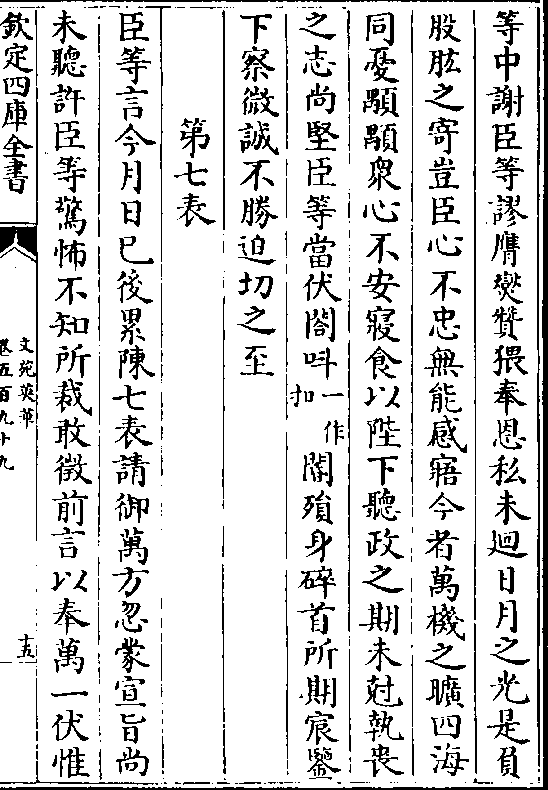 等中謝臣等謬膺爕贊猥奉恩私未迴日月之光是負
股肱之寄豈臣心不忠無能感寤今者萬機之曠四海
同憂顒顒衆心不安寢食以陛下聽政之期未尅執喪
之志尚堅臣等當伏閤呌一作扣闗殞身碎首所期宸鑒
下察微誠不勝迫切之至
第七表
臣等言今月日已後累陳七表請御萬方忽蒙宣旨尚
未聽許臣等驚怖不知所裁敢徴前言以奉萬一伏惟
欽定四庫全書
文苑英華
卷五百九十九
十五